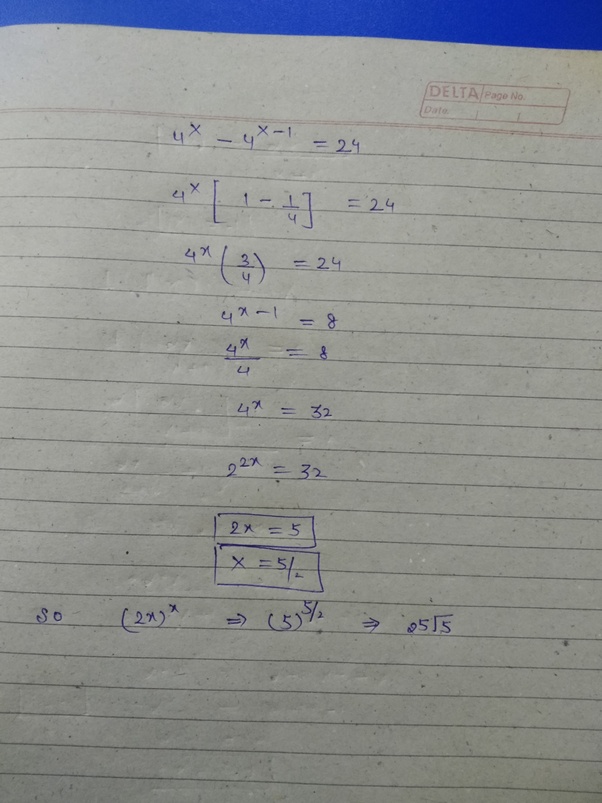 DELTA Page No.
Date
4^x - 4^(x-1) = 24
4^x [1 - 1/4] = 24
4^x (3/4) = 24
4^(x-1) = 8
4^x/4 = 8
4^x = 32
2^(2x) = 32
2x = 5
x = 5/2
so (2x)^x ⇒ (5)^(5/2) ⇒ 25√5